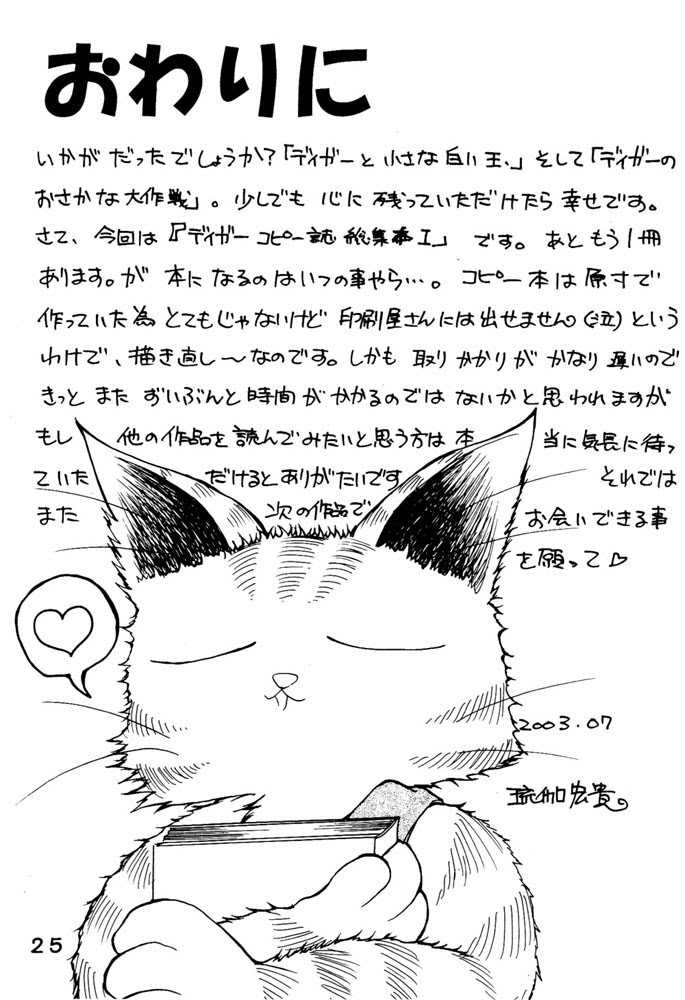 おわりに
いかがだったでしょうか?「ディガーと小さな白い玉、」そして「ディガーの
おさかな大作戦」。少しでも心に残っていただけたら幸せです。
さて、今回は『ディガーコピー誌総集本I」です。あともう1冊
あります。が本になるのはいつの事やら…。コピー本は原寸で
作っていた為とてもじゃないけど印刷屋さんには出せません(泣)という
わけで、描き直し〜なのです。しかも取りかかりがかなり遅いので
きっとまたずいぶんと時間がかかるのではないかと思われますが
もし他の作品を読んでみたいと思う方は本当に気長に待っ
ていただけるとありがたいですそれでは
また次の作品でお会いできる事
を願って♡
2003.07
琉伽宏貴。
25